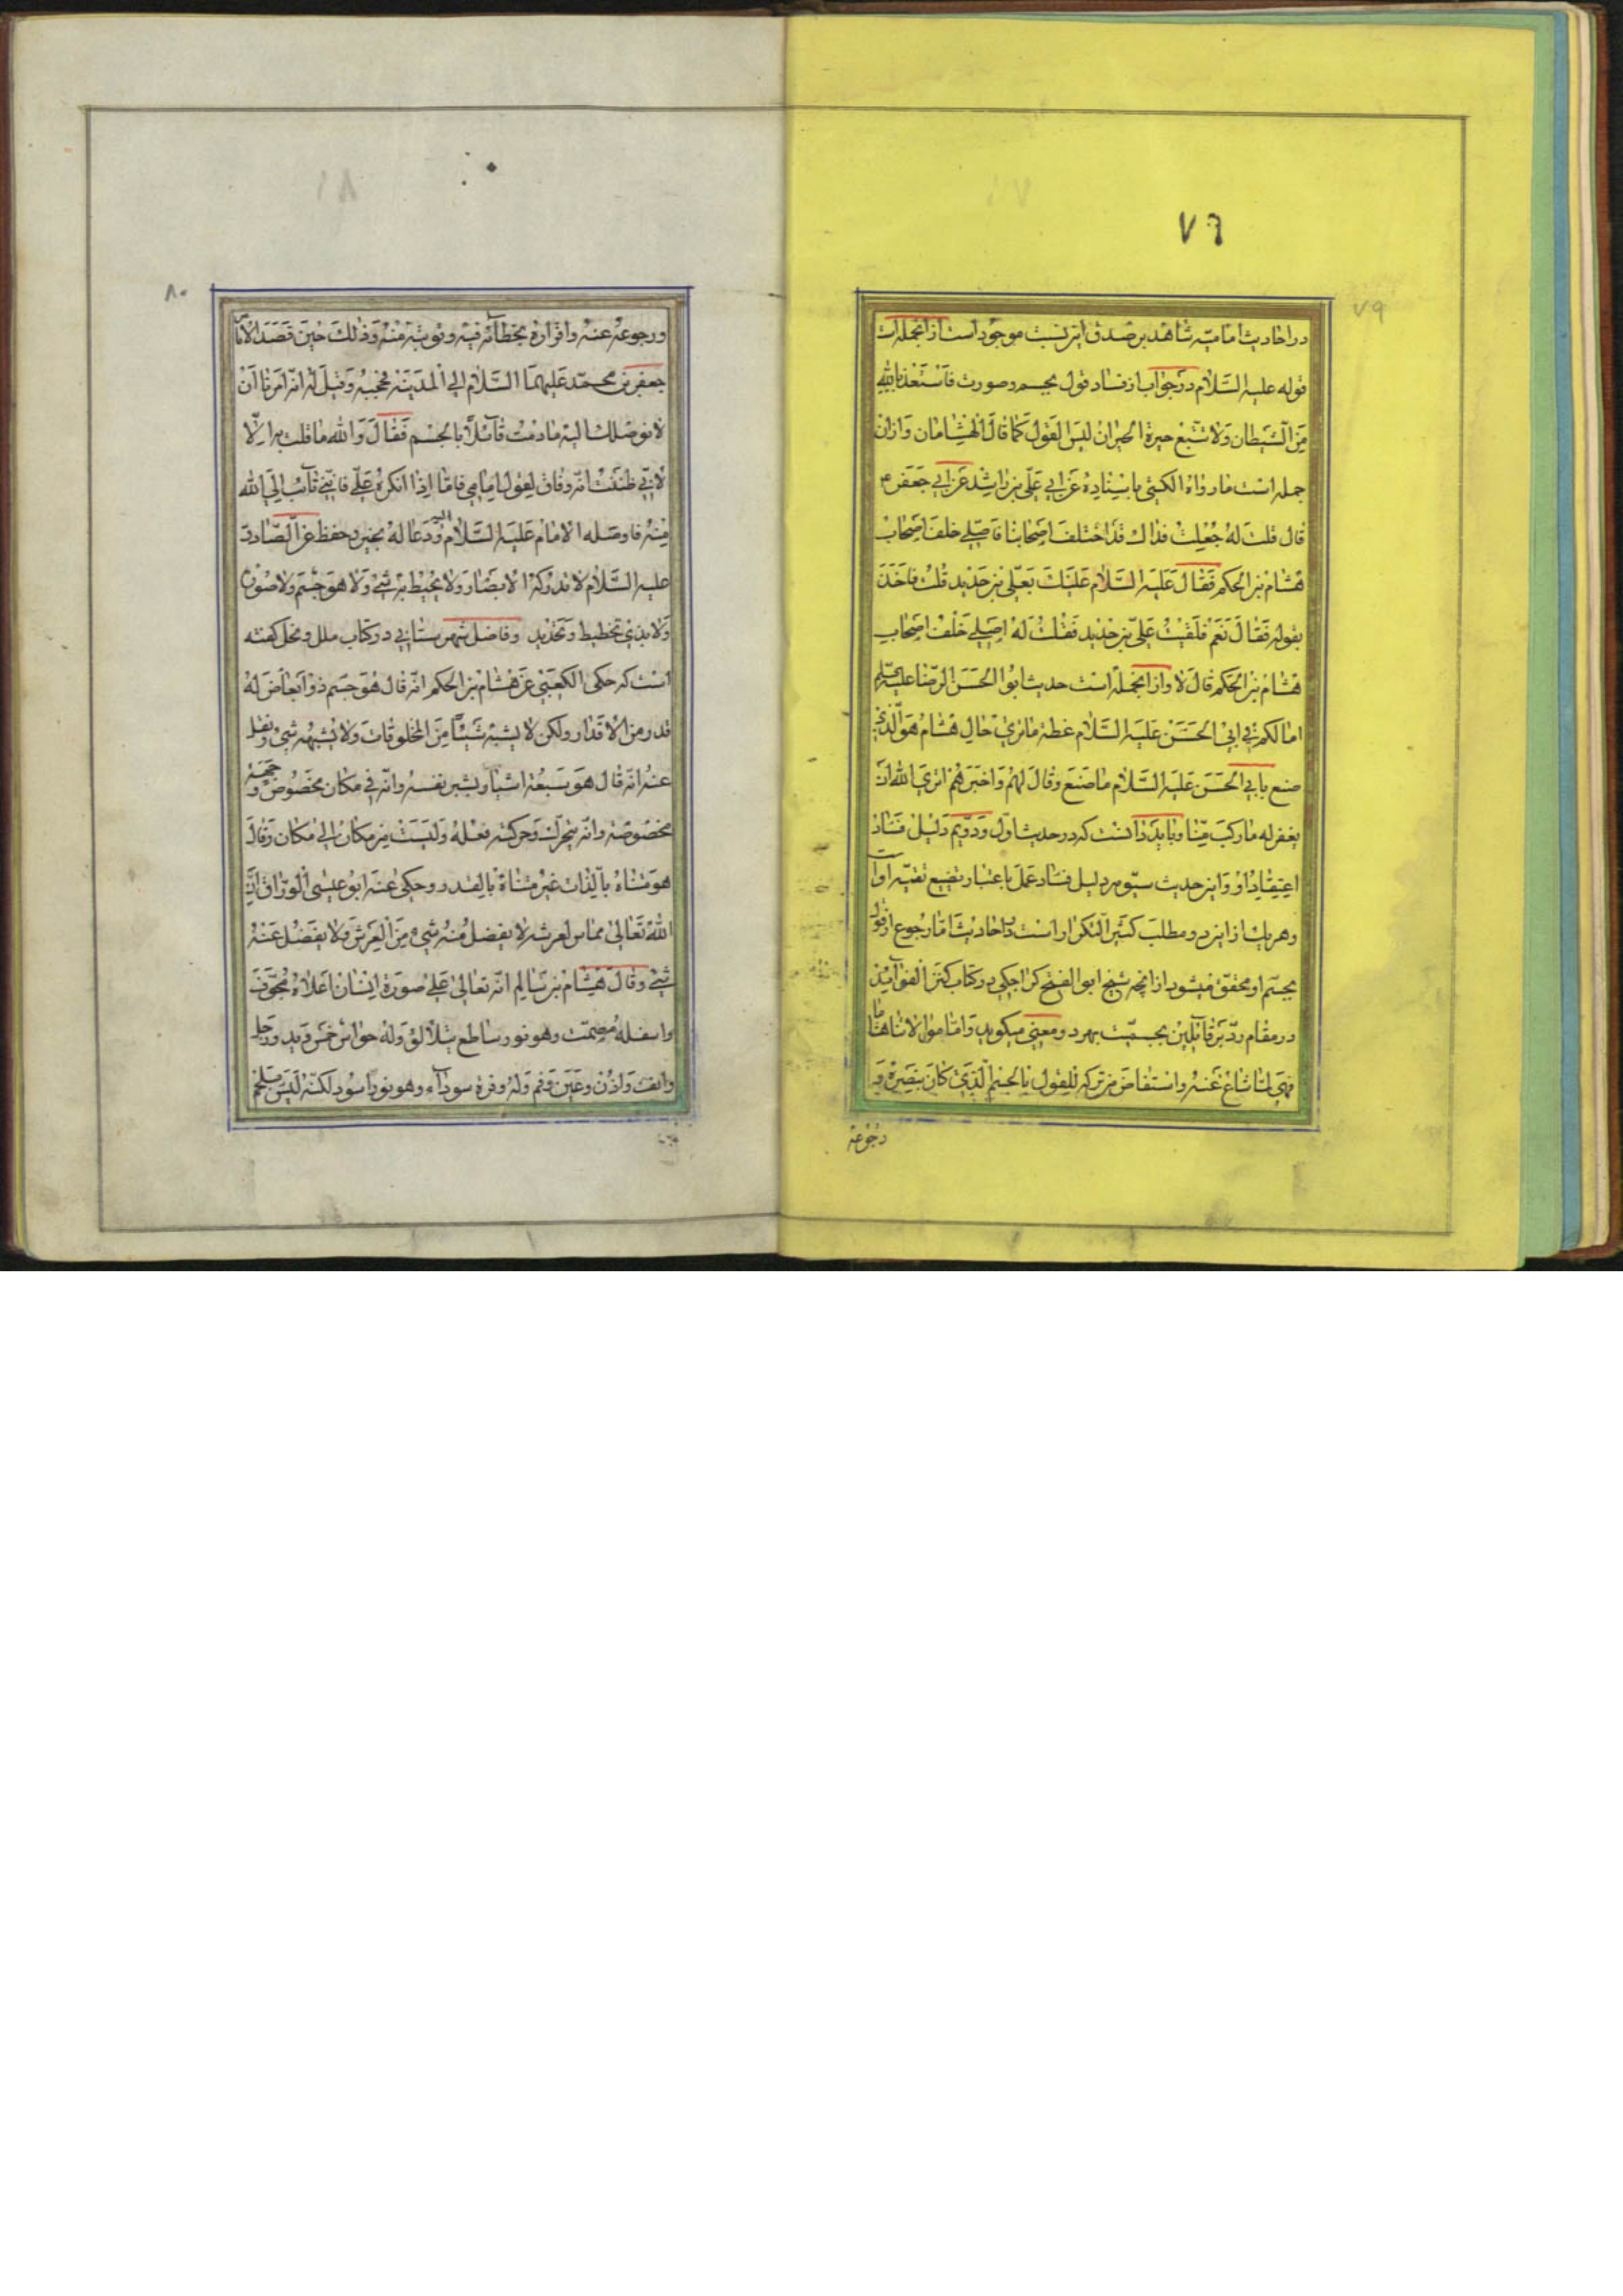 ٧٦
٧٩
در احادیث امامیّه شاهد بر صدق این نسبت موجود است از انجمله است
قوله علیه السّلام در جواب از فساد قول بجسم و صورت فاستعذ بالله
من الشیطان ولا تتبع حیرة الحیران لیس القول کما قال الهشامان و از ان
جمله است ما رواه الکشی باسناده عن ابی علی بن راشد عن ابی جعفر ع
قال قلت له جعلت فداك قد اختلف اصحابنا فاصلی خلف اصحاب
هشام بن الحکم فقال علیه السّلام علیك بعلی بن حدید قلت فاخذ
بقوله فقال نعم فلقیت علی بن حدید فقلت له اصلی خلف اصحاب
هشام بن الحکم قال لا و از انجمله است حدیث ابو الحسن الرضا علیه السلام
اما لکم فی ابی الحسن علیه السّلام عظة ما تری حال هشام هو الذی
صنع بابی الحسن علیه السّلام ما صنع وقال لهم واخبرهم اتری الله ان
یغفر له ما رکب منّا و باید دانست که در حدیث اول و دویم دلیل فساد
اعتقاد او و این حدیث سیّوم دلیل فساد عمل باعتبار تضییع تقیّه او است
و هر یك از این دو مطلب کثیر التکرار است در احادیث امّا رجوع از قول
بجسم او محقق میشود از انچه شیخ ابو الفتح کراجکی در کتاب کنز الفوائد
در مقام ردّ بر قائلین بجسمیّت بهر دو معنی میگوید و امّا موالاتنا هشاما
فهی لما شاع عنه واستفاض من ترکه للقول بالجسم الذی کان ینصره و
رجوعه
٨٠
ورجوعه عنه واقراره بخطائه فیه وتوبته منه وذلك حین قصد الامام
جعفر بن محمّد علیهما السّلام الی المدینة فحجبه وقیل له انه امرنا ان
لا نوصلك الیه ما دمت قائلا بالجسم فقال والله ما قلت به الّا
لانّی ظننت انه وفاق لقول امامی فامّا اذا انکره علیّ فانّنی تائب الی الله
منه فاوصله الامام علیه السّلام الیه ودعا له بخیر وحفظ عن الصّادق
علیه السّلام لا تدرکه الابصار ولا یحیط به شیء ولا هو جسم ولا صورة
ولا بذی تخطیط وتحدید و فاضل شهرستانی در کتاب ملل و نحل کفته
است که حکی الکعبی عن هشام بن الحکم انه قال هو جسم ذو ابعاض له
قدر من الاقدار ولکن لا یشبه شیئا من المخلوقات ولا یشبهه شیء ونقل
عنه انه قال هو سبعة اشبار بشبر نفسه وانه فی مکان مخصوص وجهة
مخصوصة وانه یتحرك وحرکته فعله ولیست من مکان الی مکان وقال
هو متناه بالذات غیر متناه بالقدر وحکی عنه ابو عیسی الورّاق انّ
الله تعالی مماس لعرشه لا یفضل منه شیء من العرش ولا یفضل عنه
شیء وقال هشام بن سالم انه تعالی علی صورة انسان اعلاه مجوّف
واسفله مصمت وهو نور ساطع یتلألؤ وله حواس خمس وید ورجل
وانف واذن وعین وفم وله وفرة سوداء وهو نور اسود لکنّه لیس بلحم